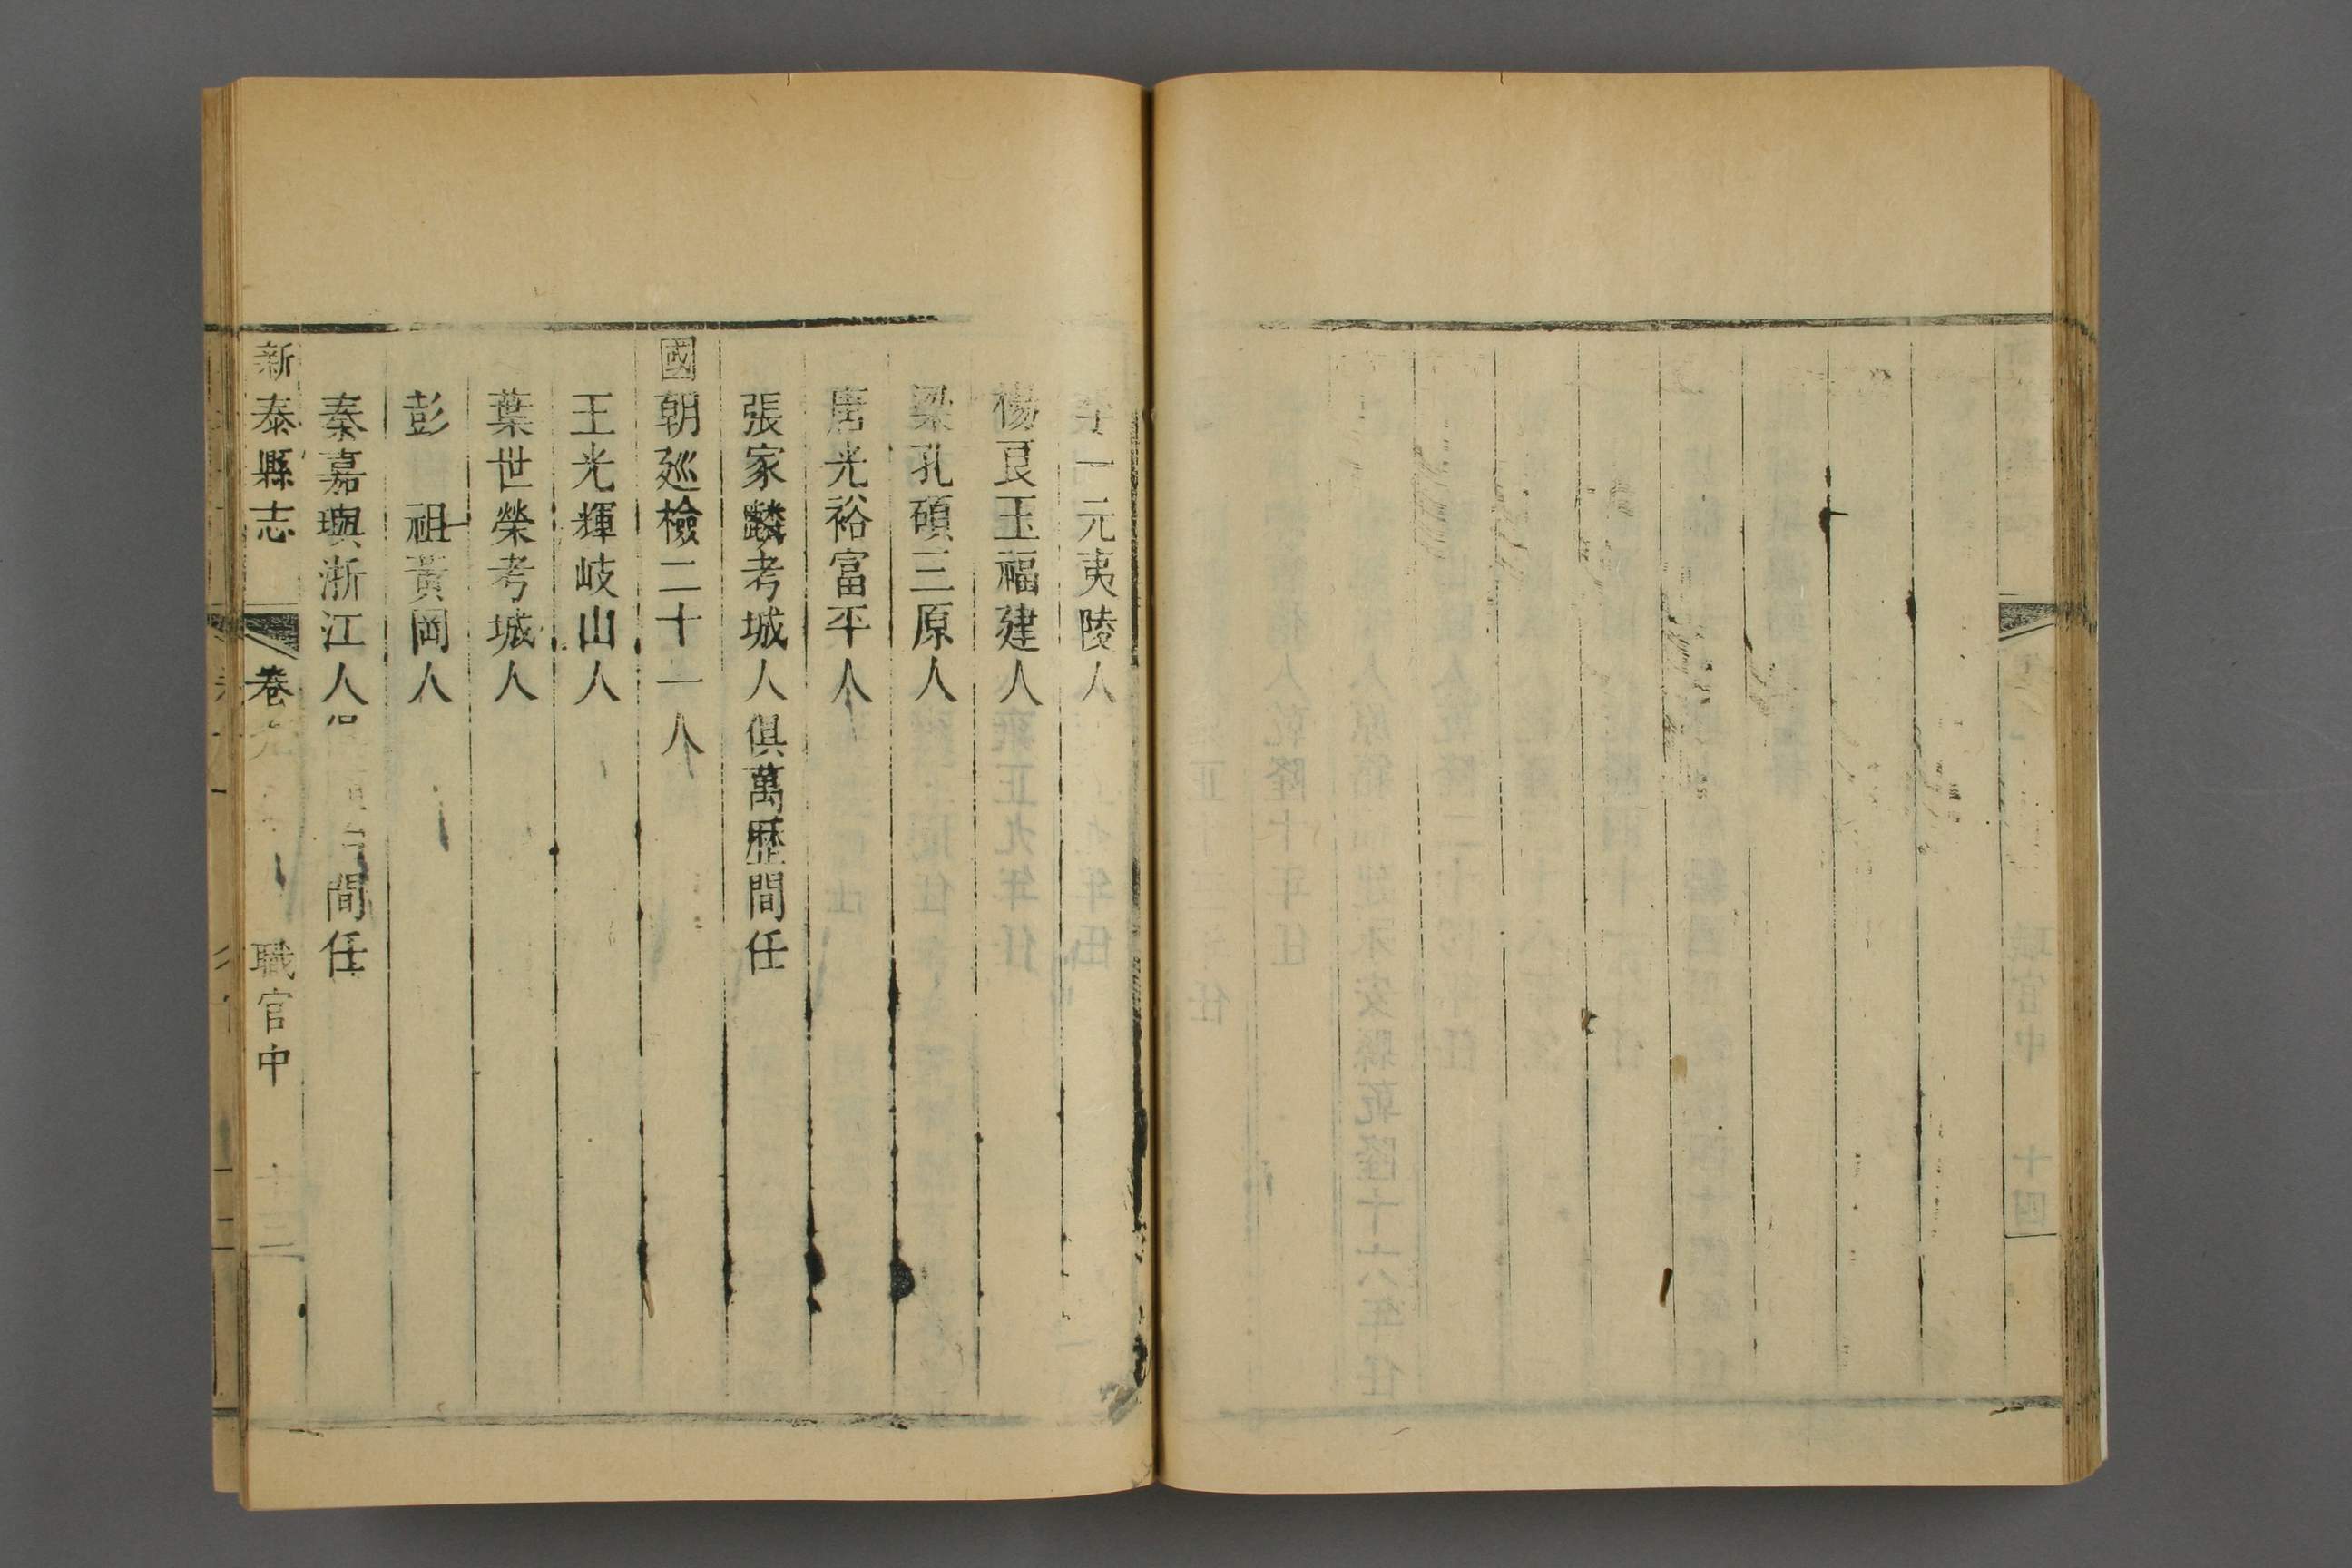 一元夷陵人
楊良玉福建人
梁孔碩三原人
唐光裕富平人
張家麟考城人俱萬歷間任
國朝廵檢二十一人
王光輝岐山人
葉世榮考城人
彭　祖黃岡人
秦嘉璵浙江人　間任
新泰縣志　卷九　職官中　十三